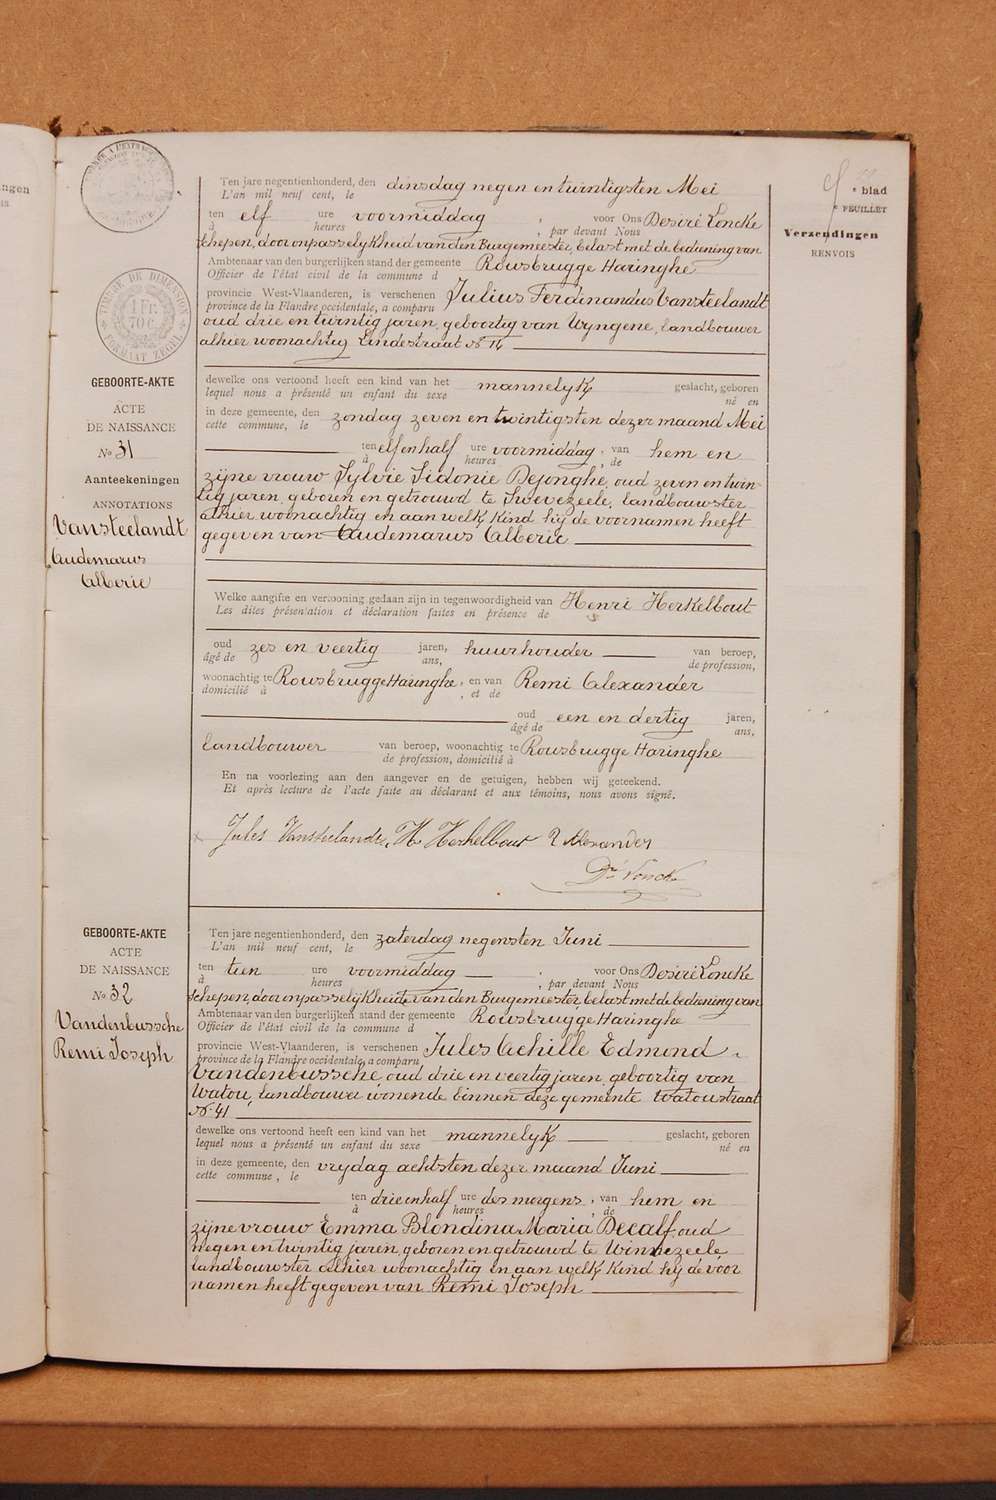 ngen
TIMBRE DE DIMENSION
1 FR.
70 C.
FORMAAT ZEGEL
blad
FEUILLET
Verzendingen
RENVOIS
GEBOORTE-AKTE
ACTE
DE NAISSANCE
No 31
Aanteekeningen
ANNOTATIONS
Vansteelandt
Audemarus
Alberic
Ten jare negentienhonderd, den dinsdag negen en twintigsten Mei
L'an mil neuf cent, le
ten elf ure voormiddag , voor Ons Desiré Loncke
à heures , par devant Nous
schepen, door onpasselijkheid van den Burgemeester, belast met de bediening van
Ambtenaar van den burgerlijken stand der gemeente Rousbrugge Haringhe
Officier de l'état civil de la commune d
provincie West-Vlaanderen, is verschenen Julius Ferdinandus Vansteelandt
province de la Flandre occidentale, a comparu
oud drie en twintig jaren, geboortig van Wyngene, landbouwer
alhier woonachtig Lindestraat No 14
dewelke ons vertoond heeft een kind van het mannelyk geslacht, geboren
lequel nous a présenté un enfant du sexe né en
in deze gemeente, den zondag zeven en twintigsten dezer maand Mei
cette commune, le
ten elf en half ure voormiddag, van hem en
à heures de
zijne vrouw Sylvie Sidonie Dejonghe, oud zeven en twin-
tig jaren, geboren en getrouwd te Swevezeele, landbouwster
alhier woonachtig en aan welk kind hij de voornamen heeft
gegeven van Audemarus Alberic
Welke aangifte en vertooning gedaan zijn in tegenwoordigheid van Henri Herkelbout
Les dites présentation et déclaration faites en présence de
oud zes en veertig jaren, huurhouder van beroep,
âgé de ans, de profession,
woonachtig te Rousbrugge Haringhe, en van Remi Alexander
domicilié à , et de
oud een en dertig jaren,
âgé de ans,
landbouwer van beroep, woonachtig te Rousbrugge Haringhe
de profession, domicilié à
En na voorlezing aan den aangever en de getuigen, hebben wij geteekend.
Et après lecture de l'acte faite au déclarant et aux témoins, nous avons signé.
Jules Vansteelandt, H Herkelbout R Alexander
Dr Loncke
GEBOORTE-AKTE
ACTE
DE NAISSANCE
No 32
Vandenbussche
Remi Joseph
Ten jare negentienhonderd, den zaterdag negensten Juni
L'an mil neuf cent, le
ten tien ure voormiddag , voor Ons Desiré Loncke
à heures , par devant Nous
schepen, door onpasselijkheid van den Burgemeester, belast met de bediening van
Ambtenaar van den burgerlijken stand der gemeente Rousbrugge Haringhe
Officier de l'état civil de la commune d
provincie West-Vlaanderen, is verschenen Jules Achille Edmond
province de la Flandre occidentale, a comparu
Vandenbussche, oud drie en veertig jaren, geboortig van
Watou, landbouwer wonende binnen deze gemeente Watoustraat
No 41
dewelke ons vertoond heeft een kind van het mannelyk geslacht, geboren
lequel nous a présenté un enfant du sexe né en
in deze gemeente, den vrydag achtsten dezer maand Juni
cette commune, le
ten drie en half ure des morgens, van hem en
à heures de
zijne vrouw Emma Blondina Maria Decalf, oud
negen en twintig jaren, geboren en getrouwd te Winnezeele,
landbouwster alhier woonachtig en aan welk kind hij de voor
namen heeft gegeven van Remi Joseph